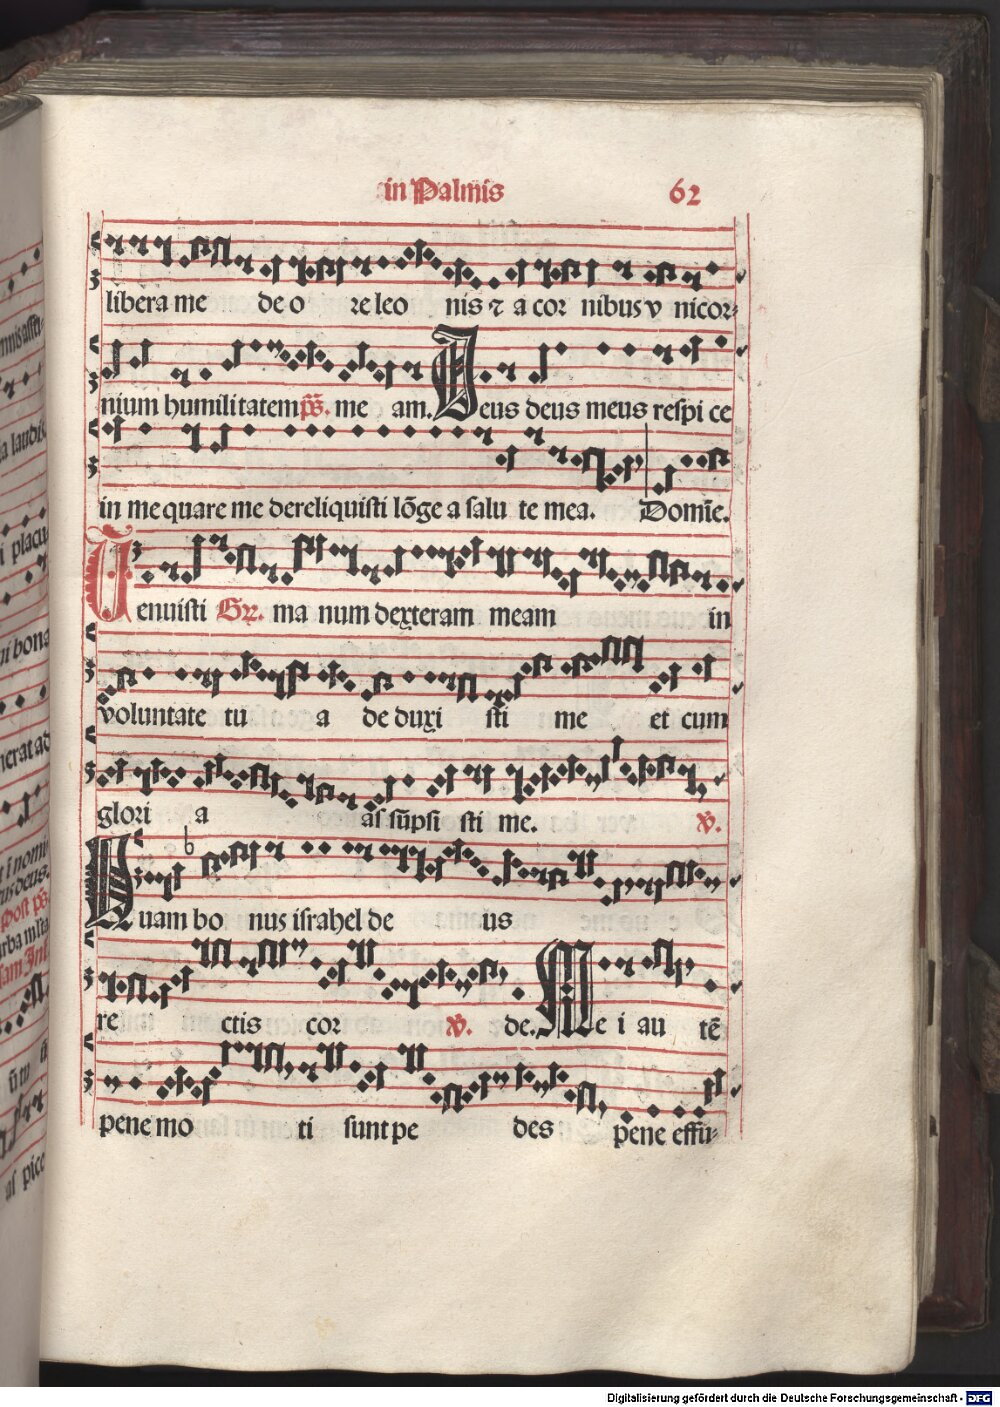 in Palmis 62
libera me de o re leo nis ⁊ a cor nibus v nicor⸗
nium humilitatem p̄s. me am. Deus deus meus respi ce
in me quare me dereliquisti lōge a salu te mea. Domīe.
Tenuisti Gr. ma num dexteram meam in
voluntate tu a de duxi sti me et cum
glori a as sūpsi sti me. V.
Quam bo nus israhel de us
re ctis cor V. de. Me i au tē
pene mo ti sunt pe des pene effu⸗
Digitalisierung gefördert durch die Deutsche Forschungsgemeinschaft - DFG